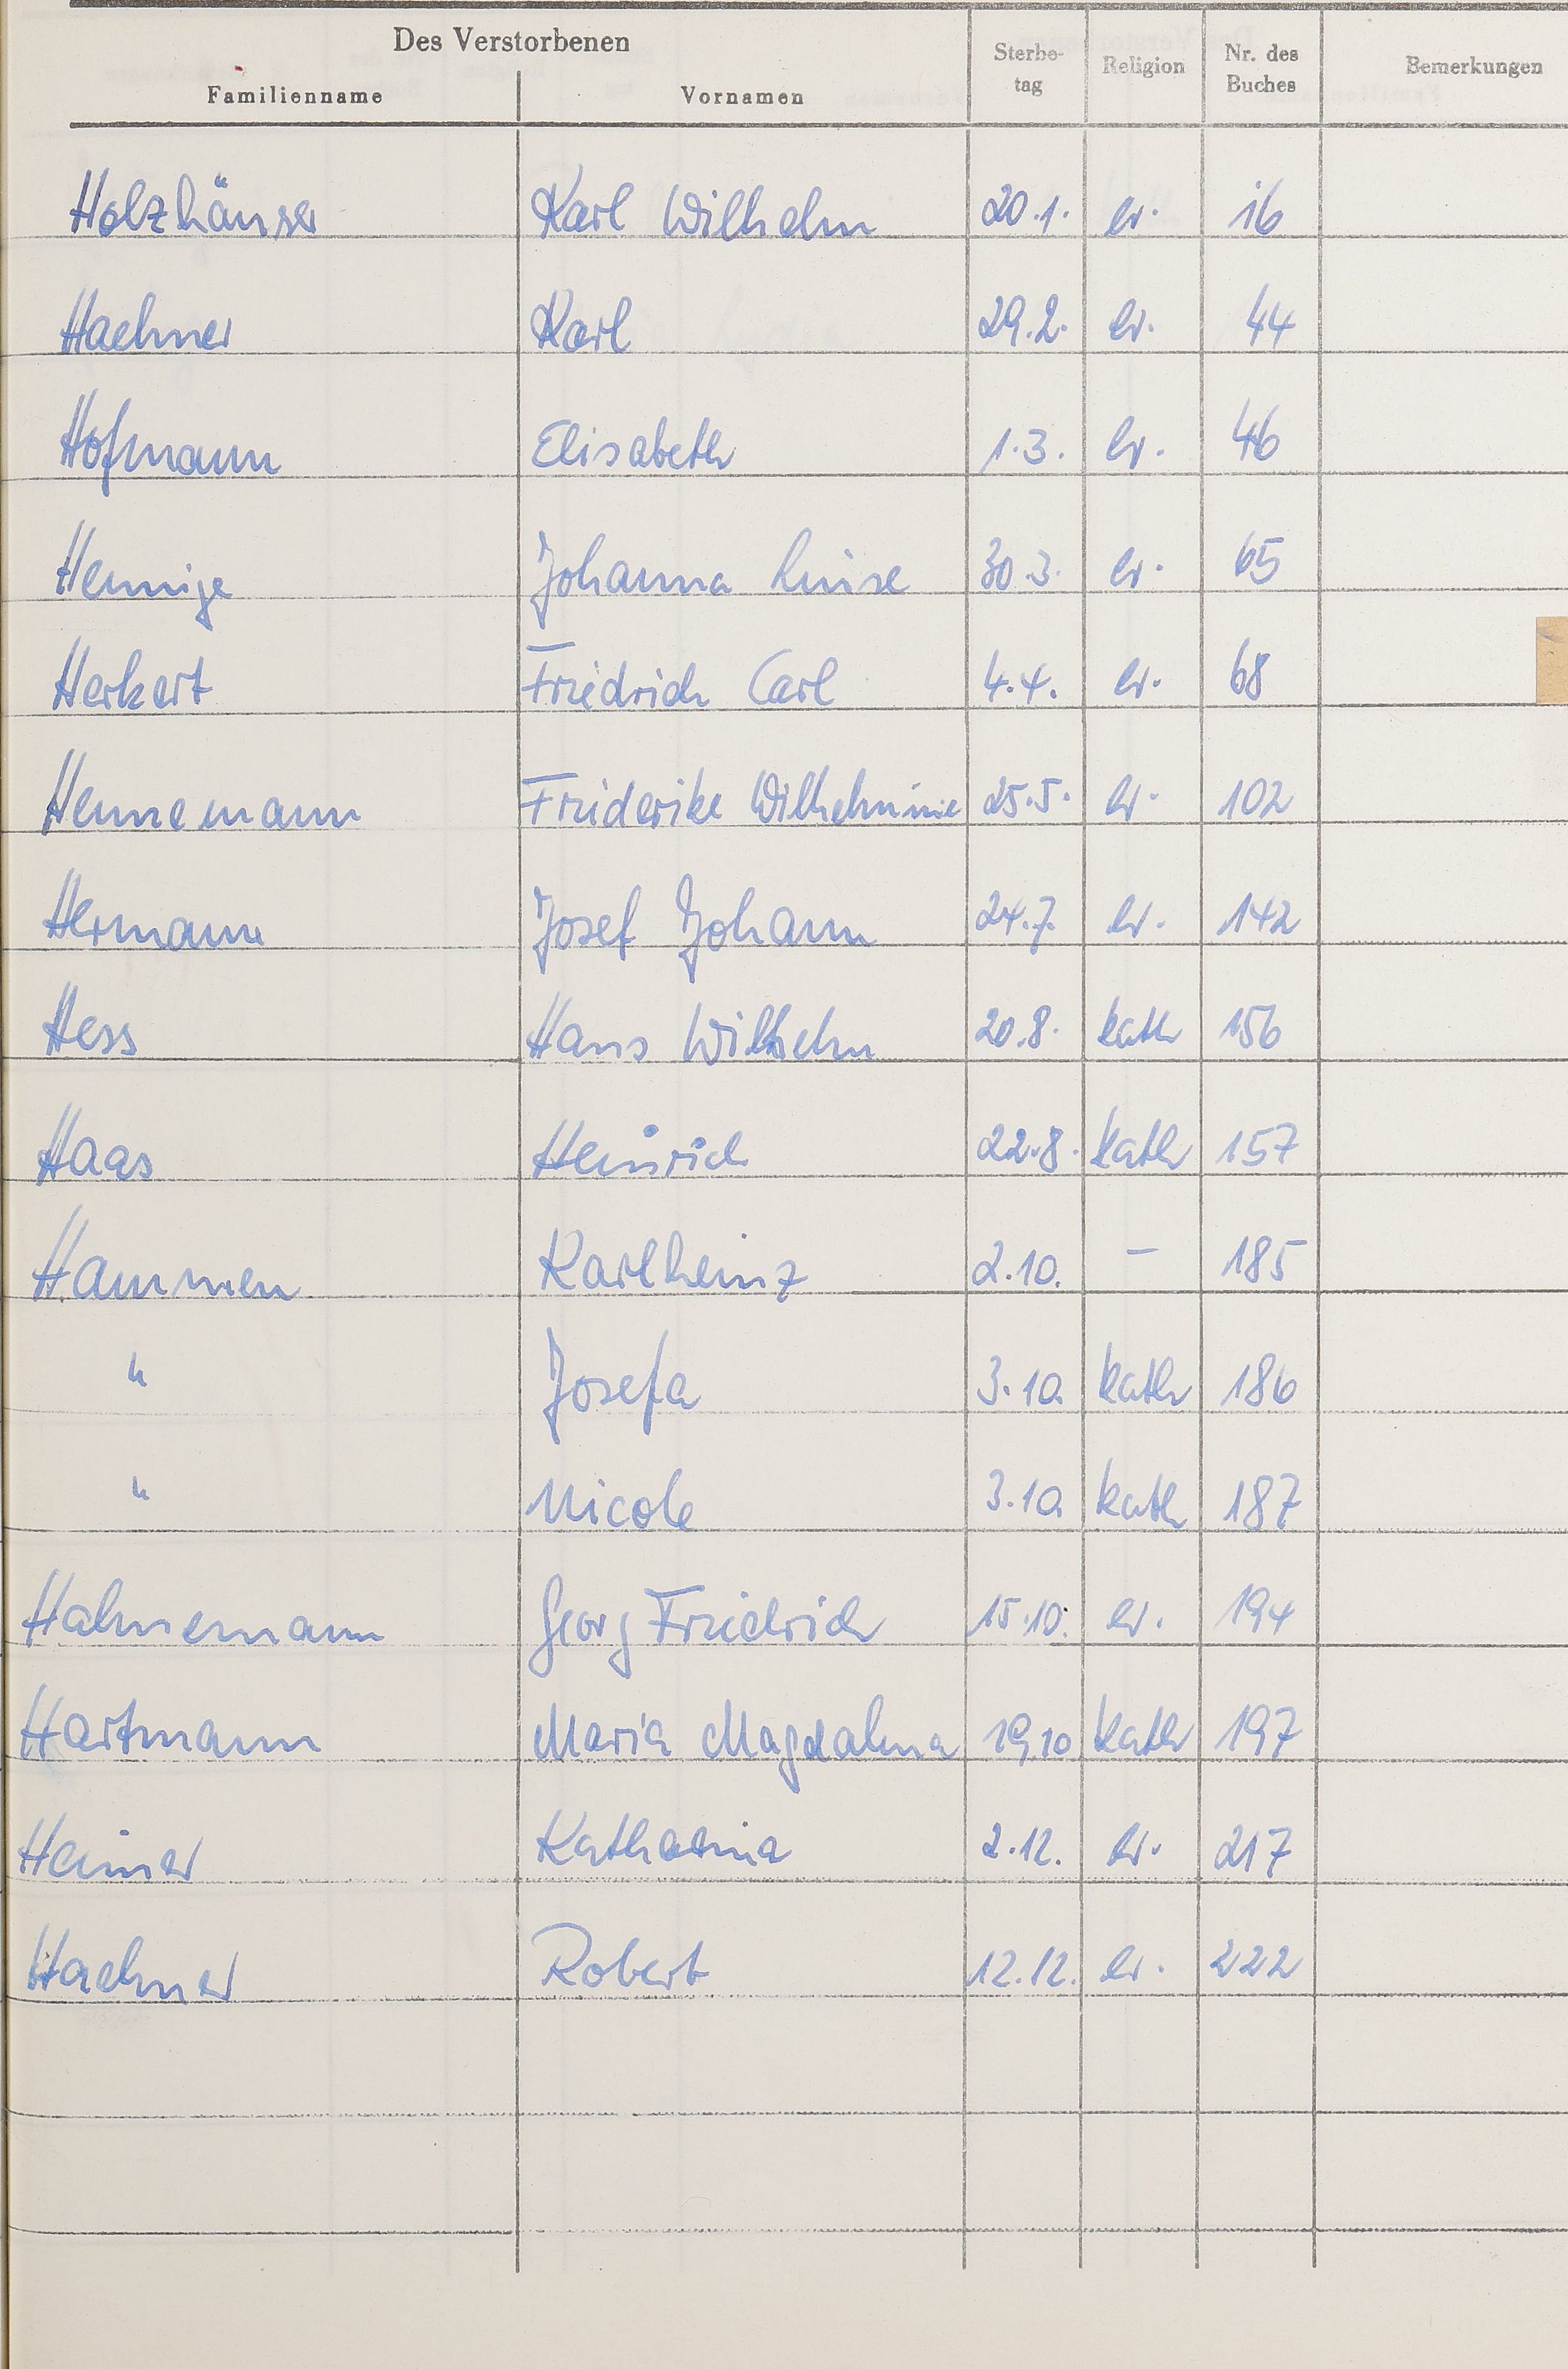 Des Verstorbenen
Familienname Vornamen Sterbe-tag Religion Nr. des Buches Bemerkungen
Holzhäuser Karl Wilhelm 20.1. ev. 16
Haehner Karl 29.2. ev. 44
Hofmann Elisabeth 1.3. ev. 46
Hennige Johanna Luise 30.3. ev. 65
Herkert Friedrich Carl 4.4. ev. 68
Hennemann Friederike Wilhelmine 25.5. ev. 102
Hermann Josef Johann 24.7. ev. 142
Hess Hans Wilhelm 20.8. kath 156
Haas Heinrich 22.8. kath 157
Hammen Karlheinz 2.10. – 185
" Josefa 3.10. kath 186
" Nicole 3.10 kath 187
Hahnemann Georg Friedrich 15.10. ev. 194
Hartmann Maria Magdalena 19.10 kath 197
Heiner Katharina 2.12. ev. 217
Haehner Robert 12.12. ev. 222